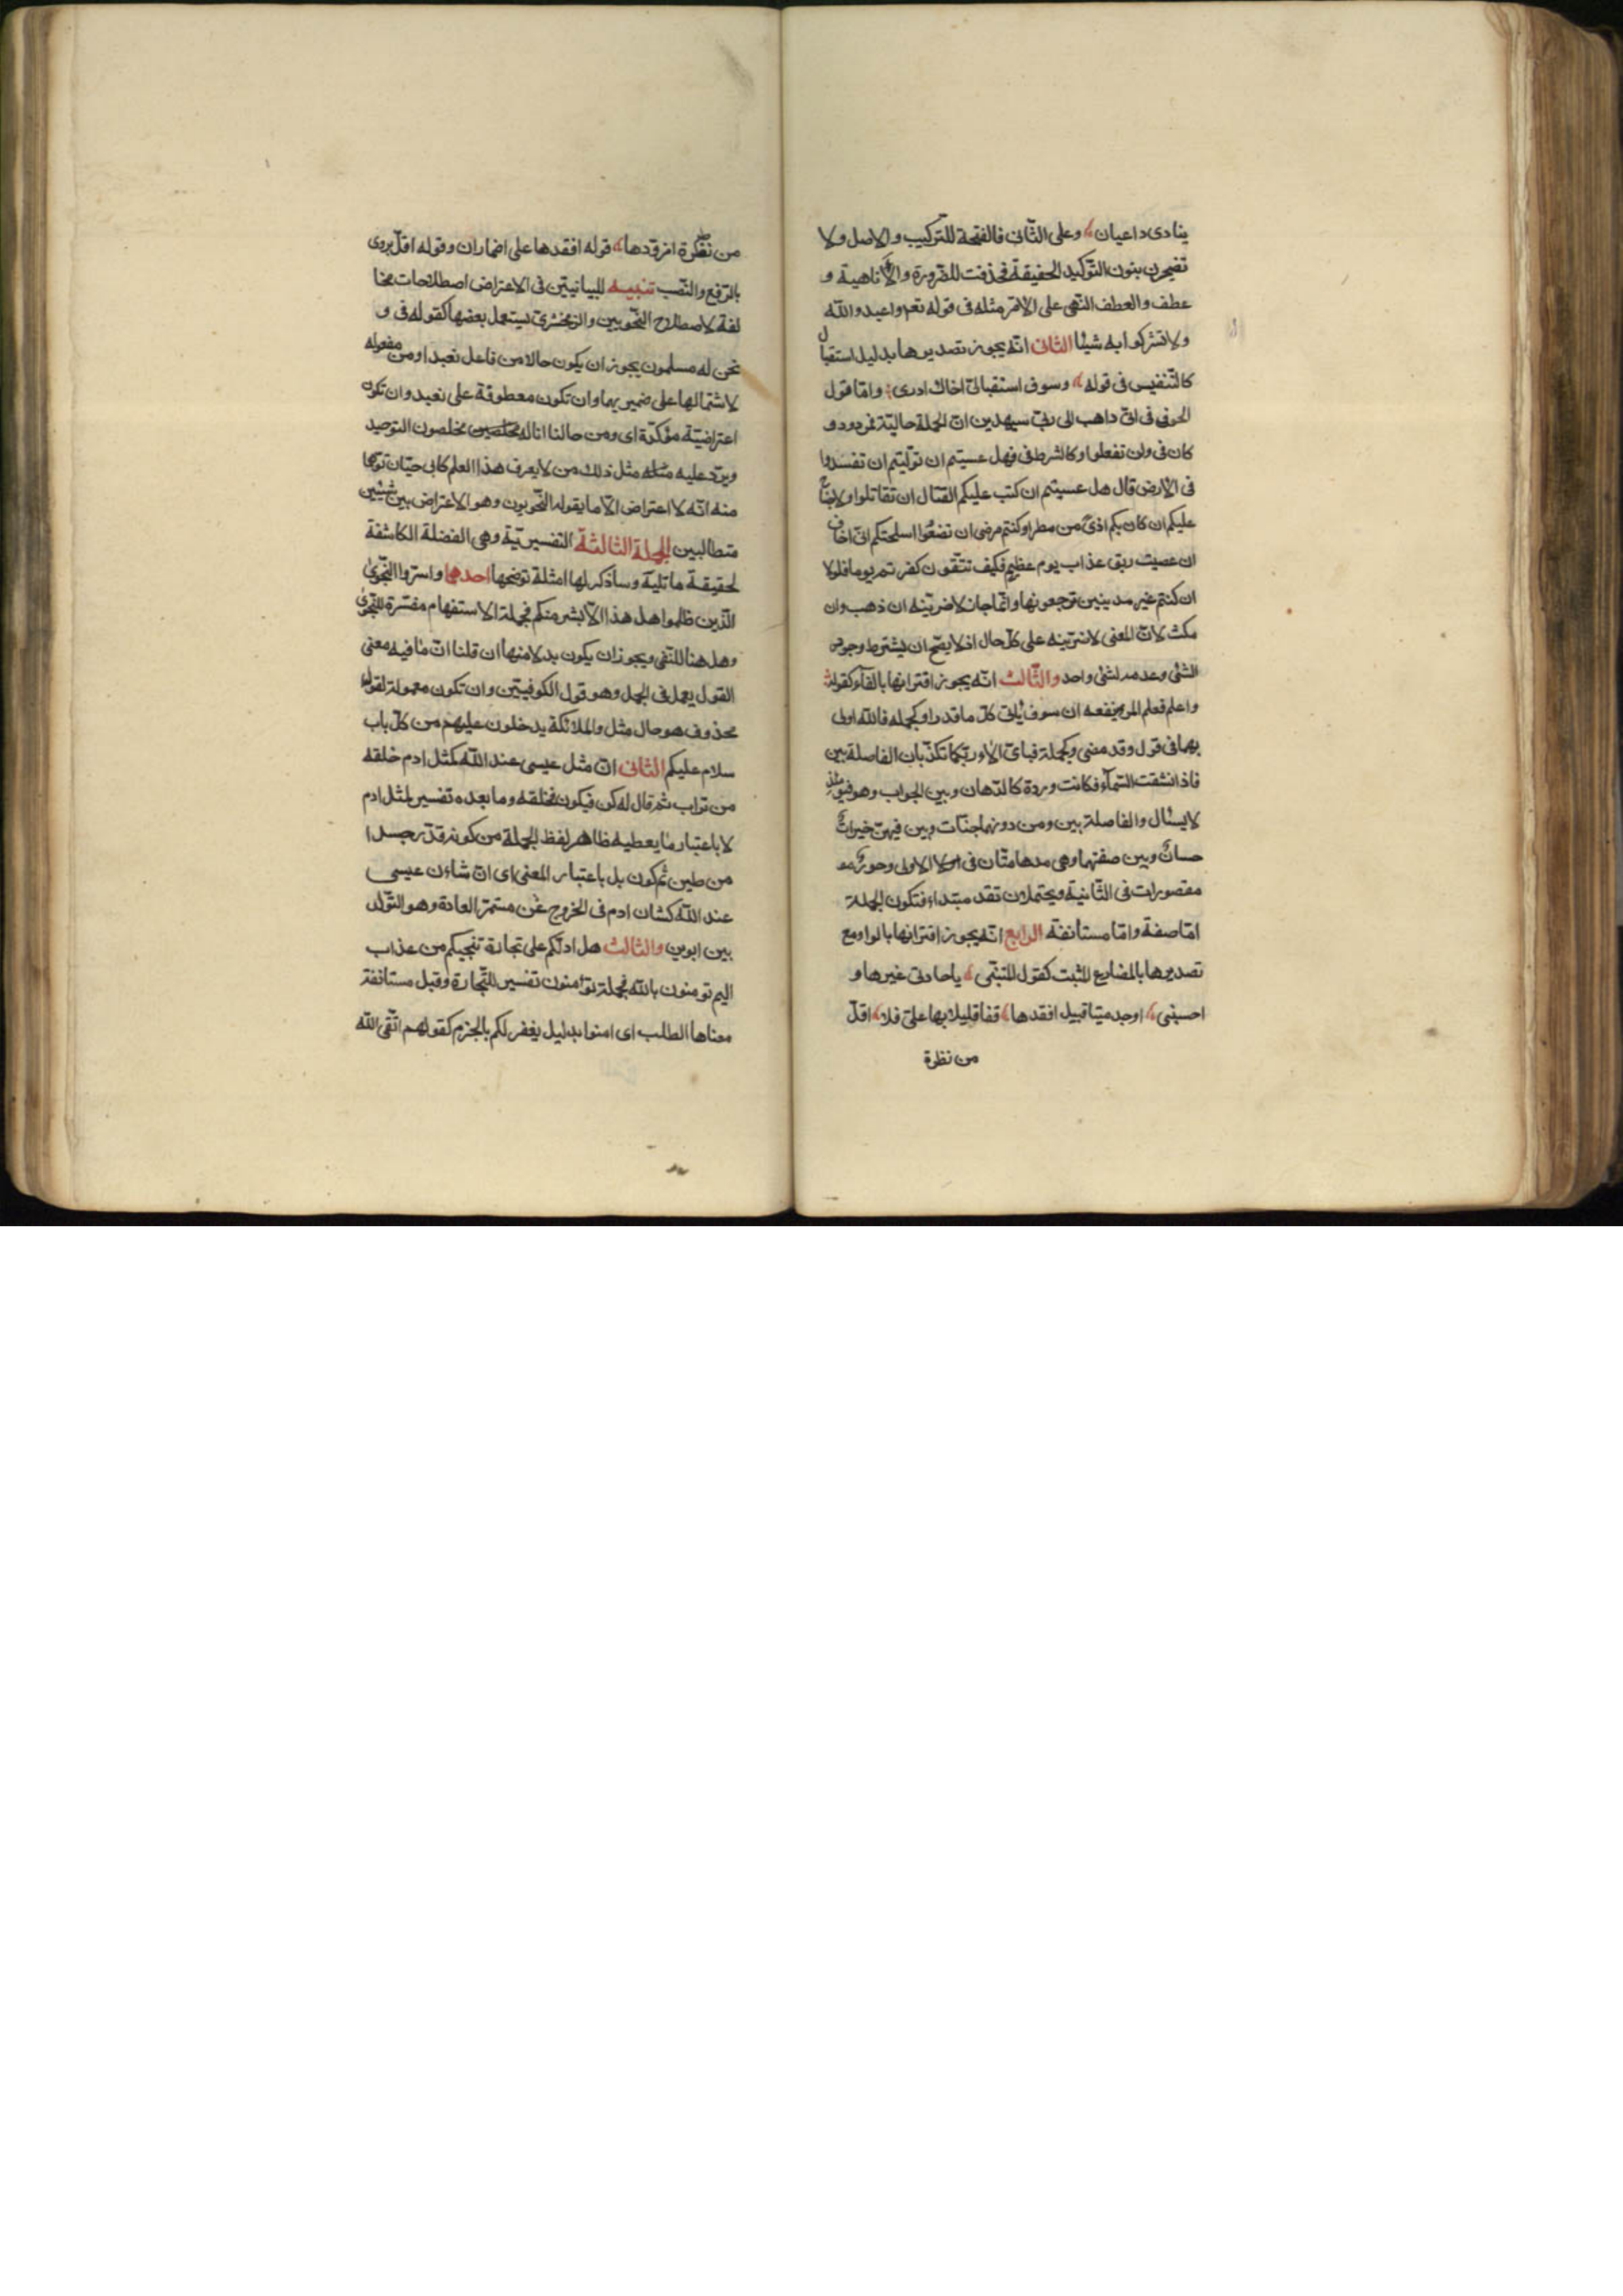 ينادى داعيان وعلى الثانى فالفتحة للتركيب والاصل ولا
تضجرن بنون التوكيد الخفيفة فحذفت للضرورة والا ناهية و
عطف والعطف النهى على الامر مثله فى قوله تعم واعبدوا الله
ولا تشركوا به شيئا الثانى انه يجوز تصديرها بدليل استقبال
كالتنفيس فى قوله وسوف استقبالى اخاك ادرى واما قول
الحوفى فى انى داهب الى ربى سيهدين ان الجملة حالية فمردود و
كان فى ولن تفعلوا وكالشرط فى فهل عسيتم ان توليتم ان تفسدوا
فى الارض قال هل عسيتم ان كتب عليكم القتال ان تقاتلوا ولا جناح
عليكم ان كان بكم اذى من مطر او كنتم مرضى ان تضعوا اسلحتكم انى اخاف
ان عصيت ربى عذاب يوم عظيم فكيف تتقون كفرتم يوما فلولا
ان كنتم غير مدينين ترجعونها وانما جاز لاضربنه ان ذهب وان
مكث لان المعنى لاضربنه على كل حال اذ لا يصح ان يشترط وجود
الشئ وعدمه لشئ واحد والثالث انه يجوز اقترانها بالفاء كقوله
واعلم فعلم المرء ينفعه ان سوف يأتى كل ما قدرا وكجمله فالله اولى
بهما فى قول وقد مضى وكجملة فباى الاء ربكما تكذبان الفاصلة بين
فاذا انشقت السماء فكانت وردة كالدهان وبين الجواب وهو فيومئذ
لا يسئال والفاصلة بين ومن دونهما جنتان وبين فيهن خيرات
حسان وبين صفتهما وهى مدهامتان فى الاولى وحور
مقصورات فى الثانية ويحتملان تقد مبتداء فتكون الجملة
اما صفة واما مستأنفة الرابع انه يجوز اقترانها بالواو مع
تصديرها بالمضارع المثبت كقول المتنبى ياحادى عيرها و
احسبنى اوجد ميتا قبيل افقدها قفا قليلا بها على فلا اقل
من نظرة
من نظرة ازودها قوله افقدها على اضمار ان وقوله اقل يروى
بالرفع والنصب تنبيه للبيانيين فى الاعتراض اصطلاحات مخا
لفة لاصطلاح النحويين والزمخشرى يستعمل بعضها كقوله فى و
نحن له مسلمون يجوز ان يكون حالا من فاعل نعبد او من مفعوله
لاشتمالها على ضميريهما وان تكون معطوفة على نعبد وان تكون
اعتراضية مؤكدة اى ومن حالنا انا له مخلصين مخلصون التوحيد
ويرد عليه مثله مثل ذلك من لا يعرف هذا العلم كابى حيان توهما
منه انه لا اعتراض الا ما يقوله النحويون وهو الاعتراض بين شيئين
متطالبين الجملة الثالثة التفسيرية وهى الفضلة الكاشفة
لحقيقة ما تليه وسأذكر لها امثلة توضحها احدها واسروا النجوى
الذين ظلموا هل هذا الا بشر منكم فجملة الاستفهام مفسرة للنجوى
وهل هنا للنفى ويجوز ان يكون بدلا منها ان قلنا ان ما فيه معنى
القول يعمل فى الجمل وهو قول الكوفيين وان تكون معمولة لقول
محذوف هو حال مثل والملائكة يدخلون عليهم من كل باب
سلام عليكم الثانى ان مثل عيسى عند الله كمثل ادم خلقه
من تراب ثم قال له كن فيكون فخلقه وما بعده تفسير لمثل ادم
لا باعتبار ما يعطيه ظاهر لفظ الجملة من كونه قدر جسدا
من طين ثم كون بل باعتبار المعنى اى ان شاءن عيسى
عند الله كشان ادم فى الخروج عن مستمر العادة وهو التولد
بين ابوين والثالث هل ادلكم على تجارة تنجيكم من عذاب
اليم تومنون بالله فجملة تؤمنون تفسير للتجارة وقيل مستانفة
معناها الطلب اى امنوا بدليل يغفر لكم بالجزم كقولهم اتقى الله